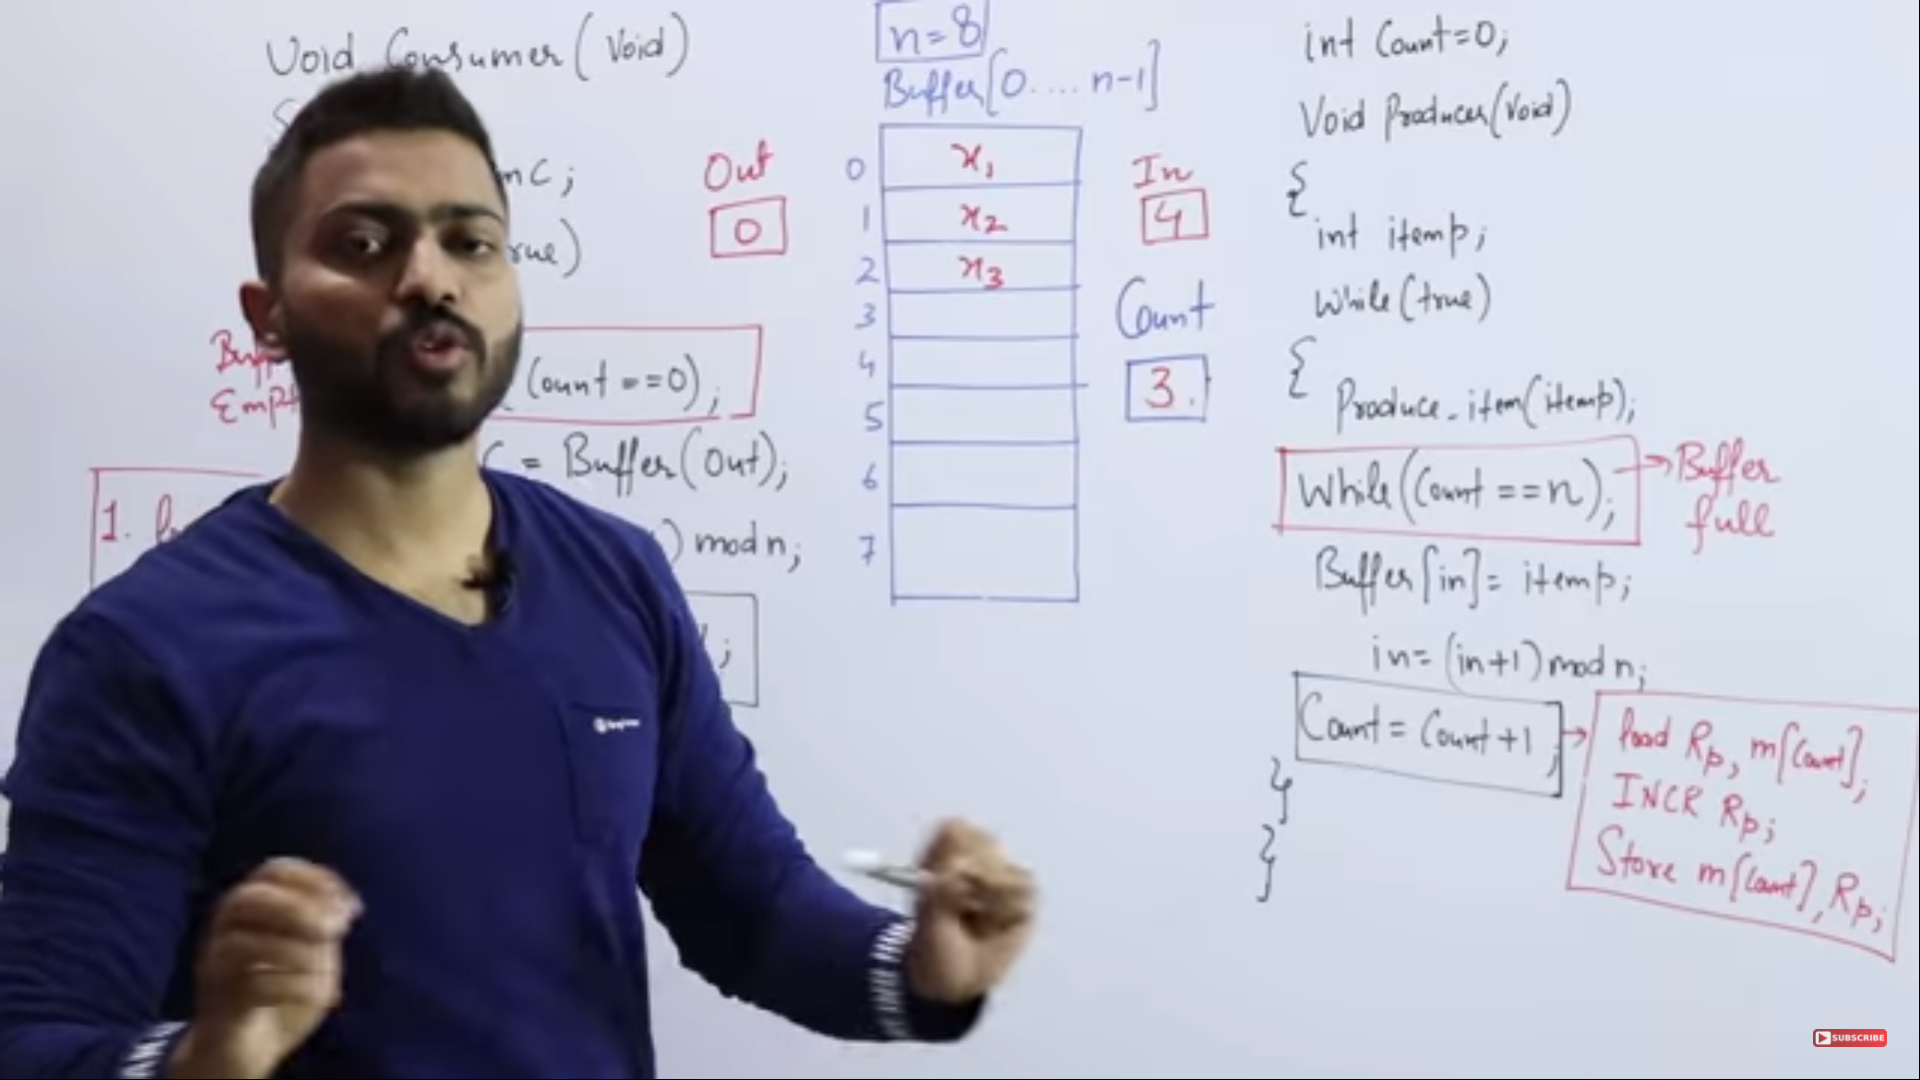 Void Consumer (Void)
mC;
rue)
Count == 0);
= Buffer(Out);
) mod n;
;
1.
n=8
Buffer[0.... n-1]
Out
0
0
1
2
3
4
5
6
7
x1
x2
x3
In
4
Count
3.
int Count=0;
Void Producer(Void)
{
int itemp;
While(true)
{
Produce_item(itemp);
While(Count == n);
Buffer
full
Buffer[in]= itemp;
in= (in+1) mod n;
Count = Count +1;
}
}
load Rp, m[Count];
INCR Rp;
Store m[Count], Rp;
SUBSCRIBE